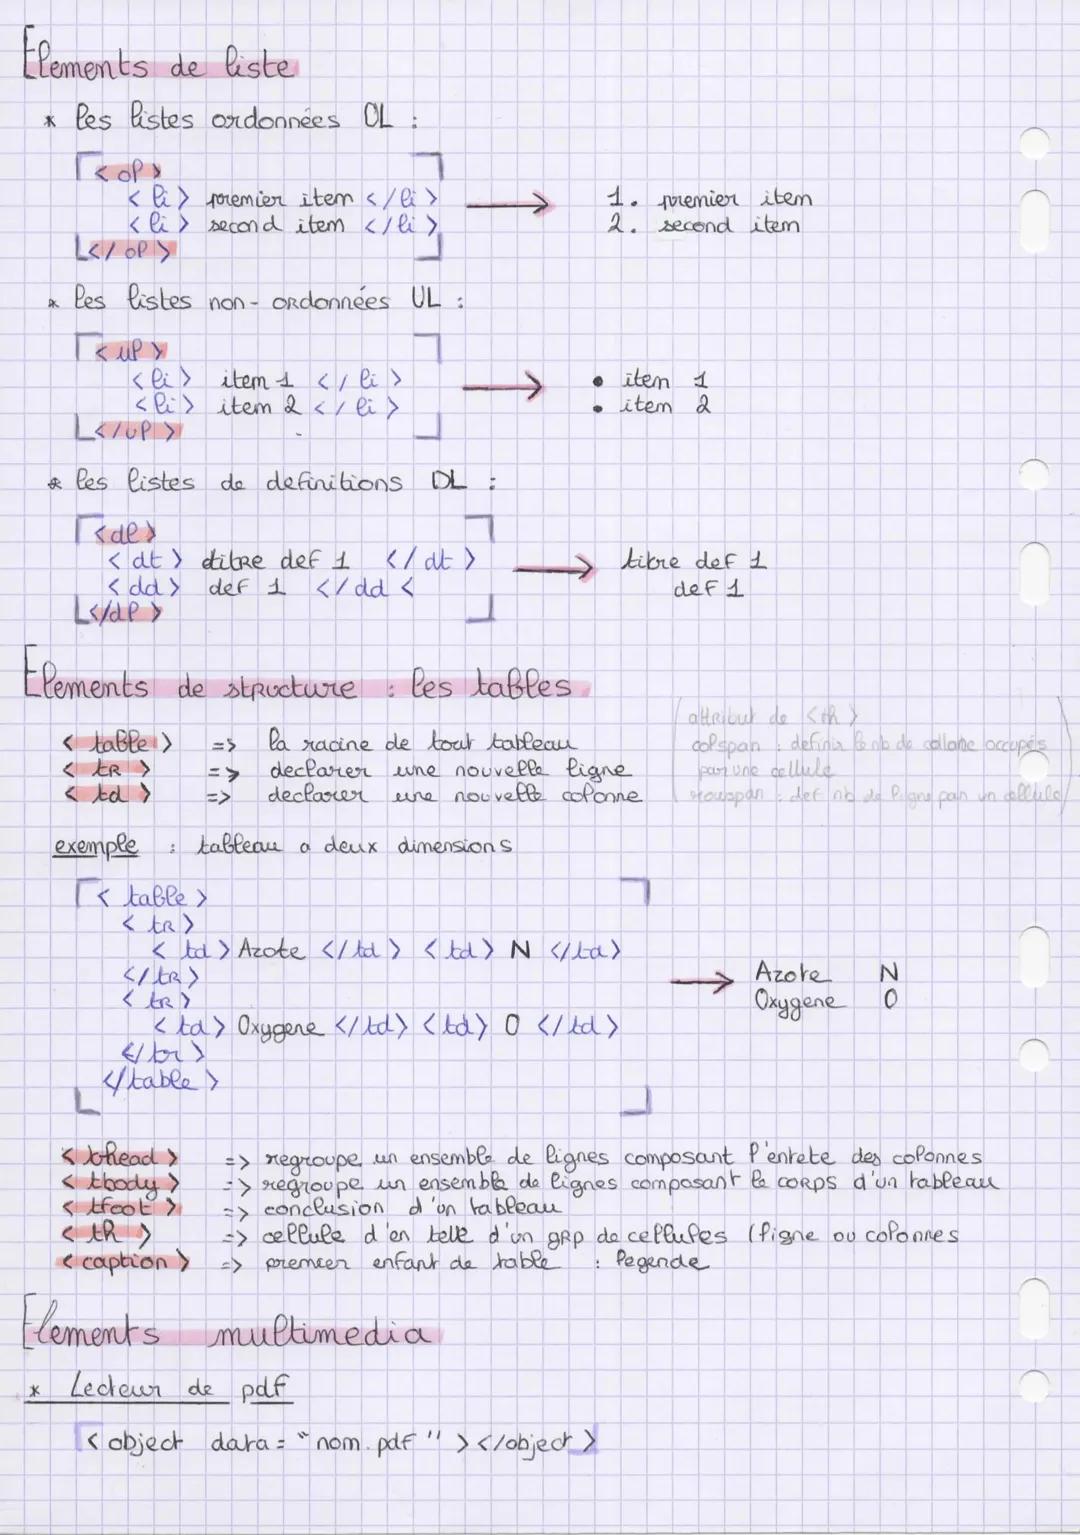 Elements de liste
* les listes ordonnées OL :
<ol>
<li> premier item </li>
<li> second item </li>
</ol>
1. premier item
2. second item
* les listes non-ordonnées UL :
<ul>
<li> item 1 </li>
<li> item 2 </li>
</ul>
• item 1
• item 2
* les listes de definitions DL :
<dl>
<dt> titre def 1 </dt>
<dd> def 1 </dd <
</dl>
titre def 1
def 1
Elements de structure : les tables
<table> => la racine de tout tableau
<tR> => declarer une nouvelle ligne
<td> => declarer une nouvelle colonne
attribut de <th>
colspan : definir le nb de collone occupés
par une cellule
rowspan : def nb de ligne par un cellule
exemple : tableau a deux dimensions
<table>
<tR>
<td> Azote </td> <td> N </td>
</tR>
<tR>
<td> Oxygene </td> <td> O </td>
</tr>
</table>
Azote N
Oxygene O
<thead> => regroupe un ensemble de lignes composant l'entete des colonnes
<tbody> => regroupe un ensemble de lignes composant le corps d'un tableau
<tfoot> => conclusion d'un tableau
<th> => cellule d'en tete d'un gRp de cellules (ligne ou colonnes
<caption> => premier enfant de table : legende
Elements multimedia
* Lecteur de pdf
<object data = "nom.pdf"></object>